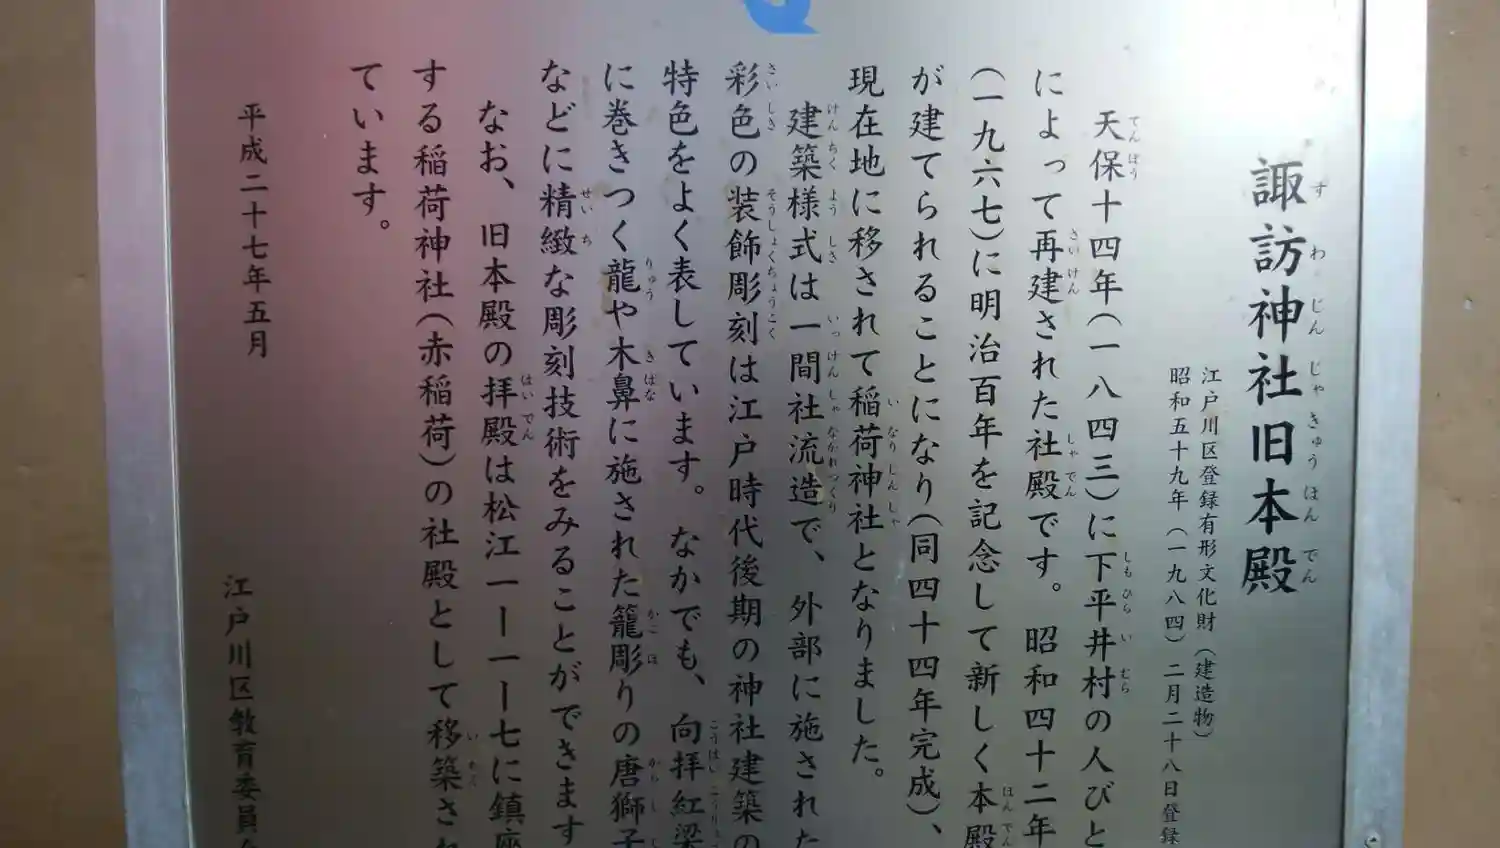 諏訪神社旧本殿
江戸川区登録有形文化財（建造物）
昭和五十九年（一九八四）二月二十八日登録
天保十四年（一八四三）に下平井村の人びと
によって再建された社殿です。昭和四十二年
（一九六七）に明治百年を記念して新しく本殿
が建てられることになり（同四十四年完成）、
現在地に移されて稲荷神社となりました。
建築様式は一間社流造で、外部に施された
彩色の装飾彫刻は江戸時代後期の神社建築の
特色をよく表しています。なかでも、向拝紅梁
に巻きつく龍や木鼻に施された籠彫りの唐獅子
などに精緻な彫刻技術をみることができます
なお、旧本殿の拝殿は松江一ー一ー七に鎮座
する稲荷神社（赤稲荷）の社殿として移築され
ています。
平成二十七年五月
江戸川区教育委員会